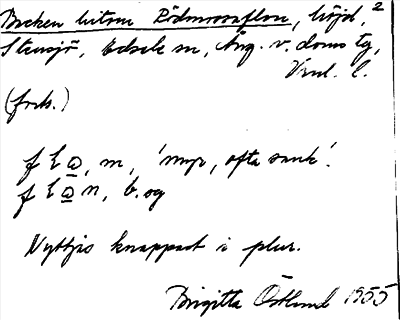 Backen bitom Rödmossaflon, höjd, 2
Stensjö, Edsele sn, Ång. v. doms tg,
Vnl. l.
(forts.)
f l o, m, 'myr, ofta sank'.
f l o n, b. sg
Nyttjas knappast i plur.
Birgitta Östlund 1955